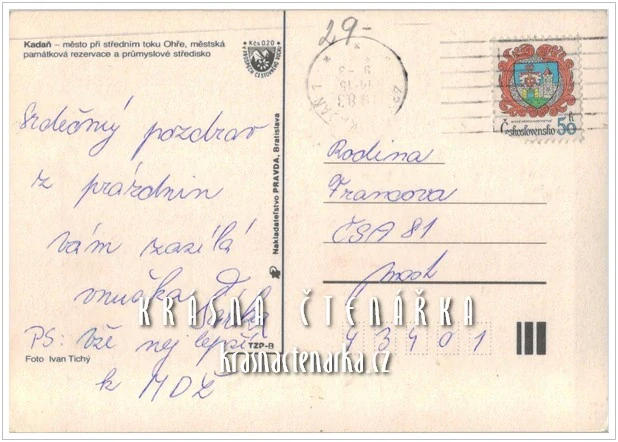 Kadaň – město při středním toku Ohře, městská
památková rezervace a průmyslové středisko
Kčs 0.20
29-
Československo 50 h
Srdečný pozdrav
z prázdnin
vám zasílá
vnučka
PS: Vše nej lepší
k MDŽ
Foto Ivan Tichý
Nakladatelství PRAVDA, Bratislava
TZP-B
Rodina
Francova
ČSA 81
Most
43401
KRÁSNÁ ČTENÁŘKA
krasnactenarka.cz